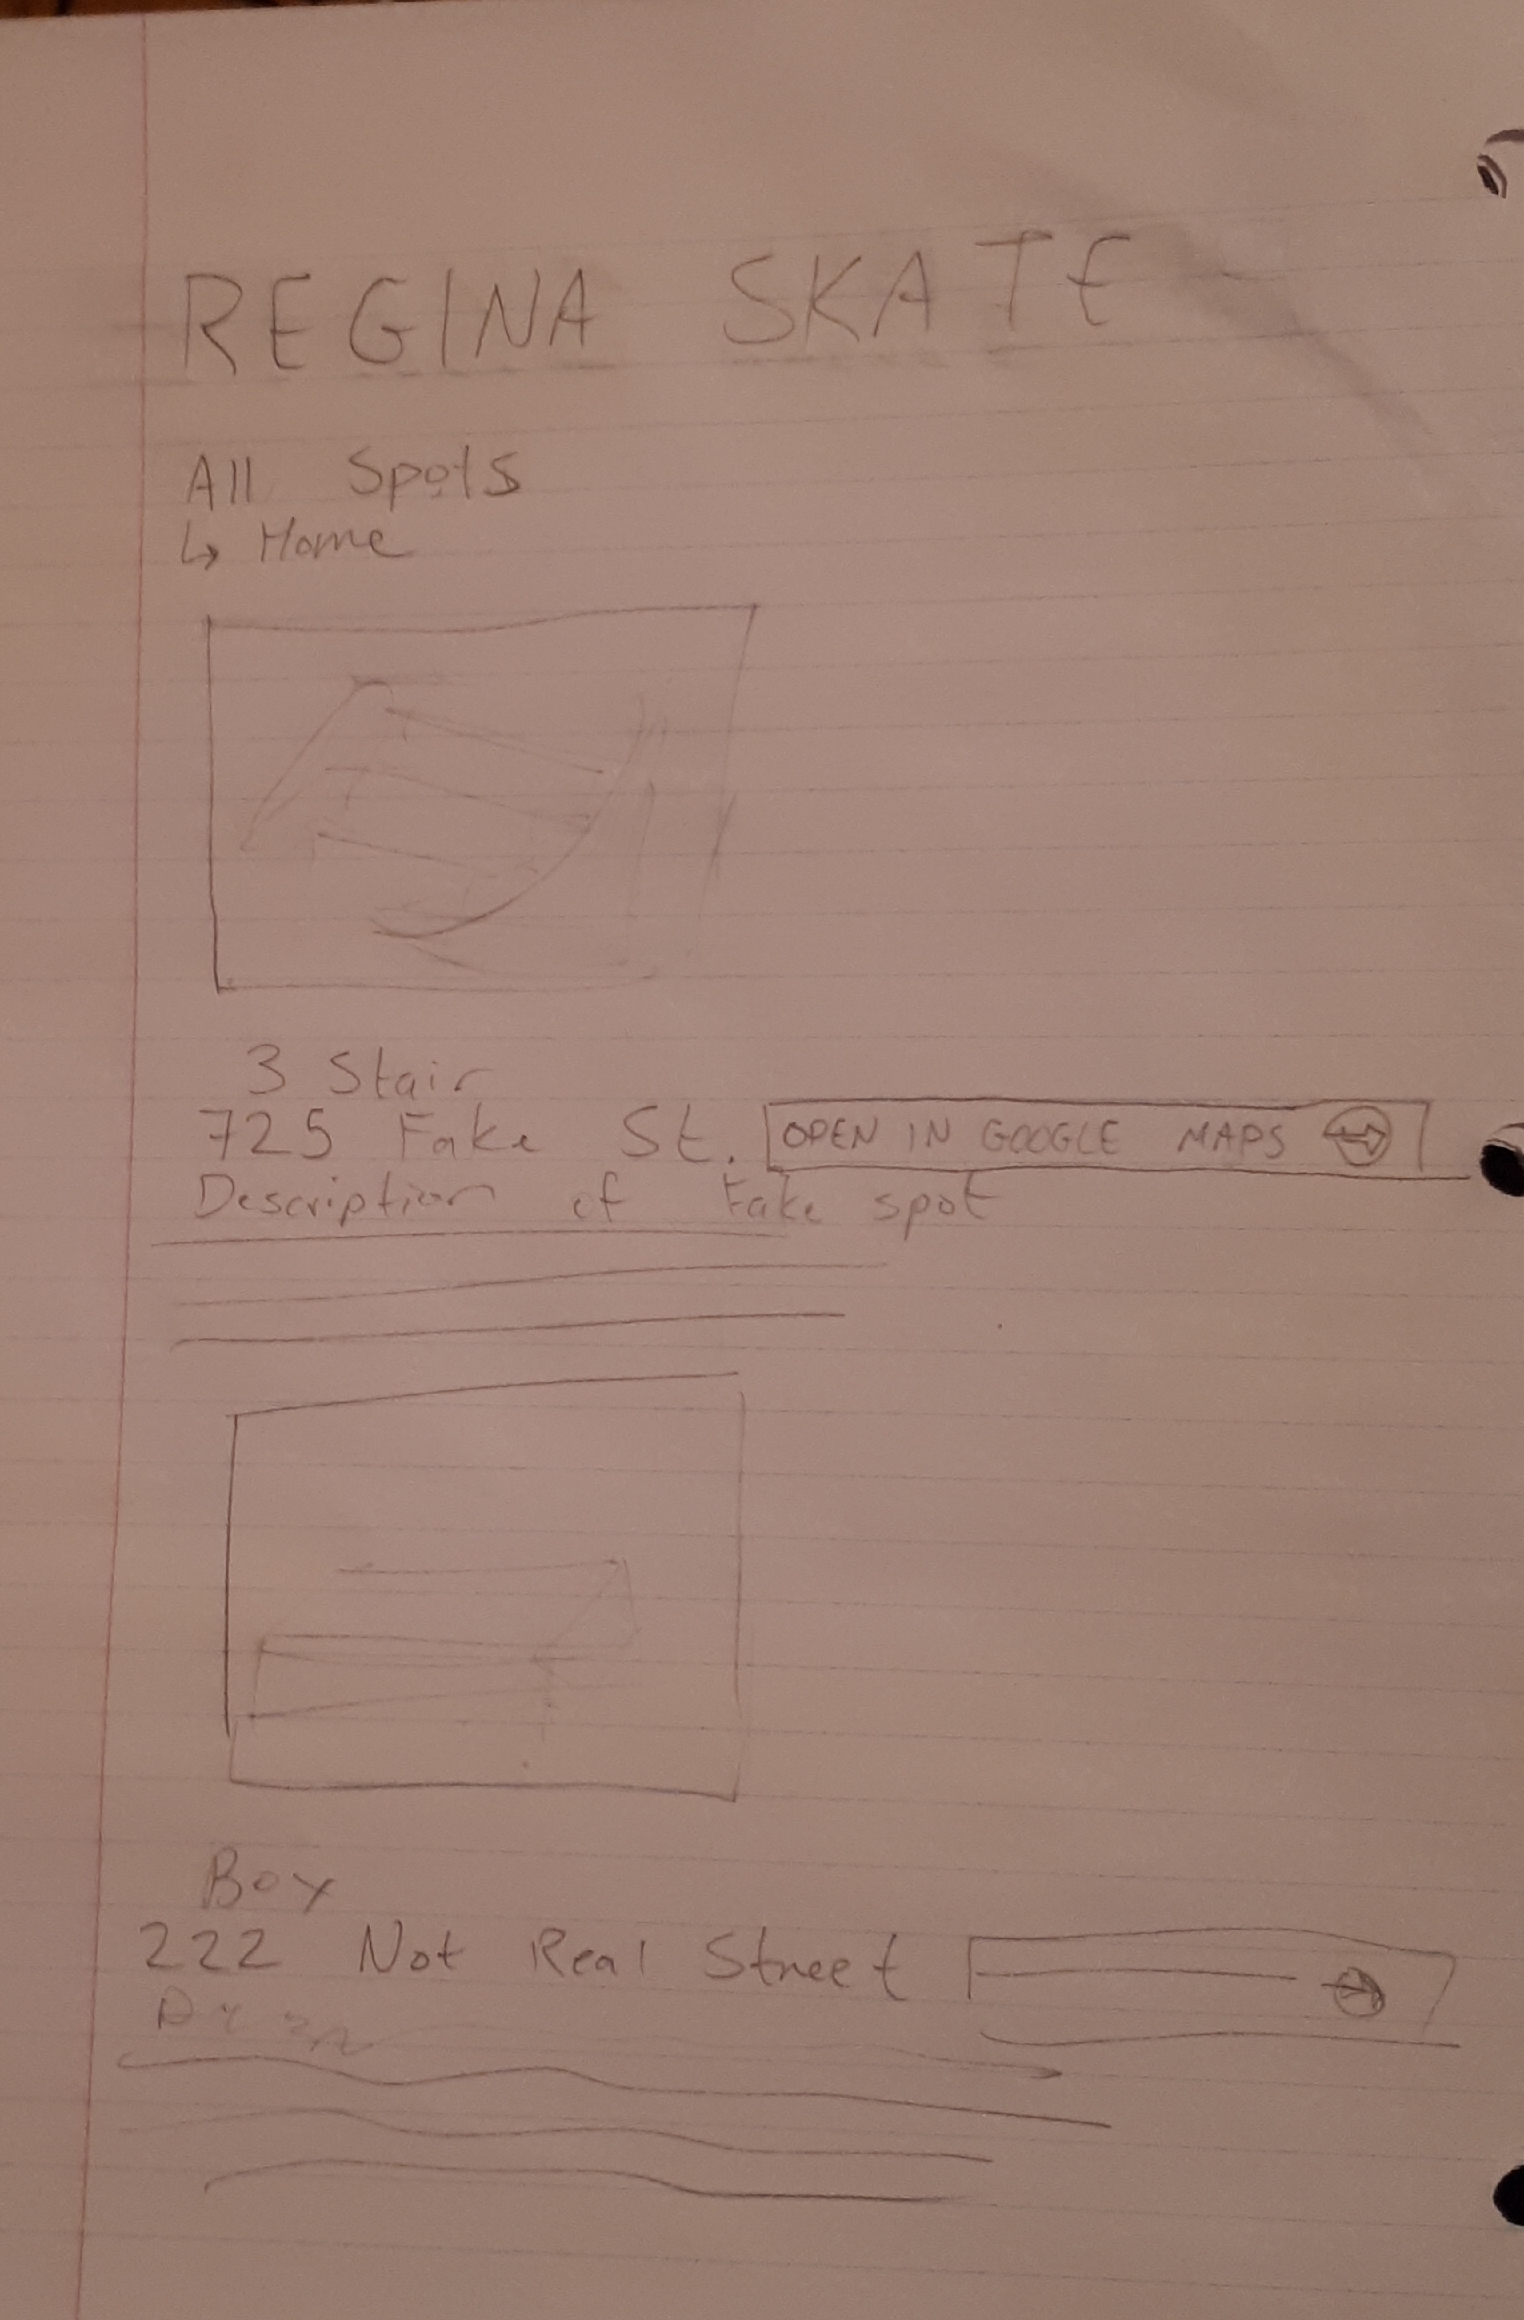 REGINA SKATE
All Spots
↳ Home
3 Stair
725 Fake St. OPEN IN GOOGLE MAPS →
Description of Fake spot
Box
222 Not Real Street →